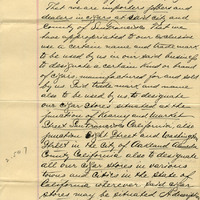 That we are importers of and
dealers in cigars at said city and
County of San Francisco. That we
has appropriated to our exclusive
use a certain name and trade mark
to be used by us in our said business
to designate a certain kind or brand
of cigars manufactured for and sold
by us. Said trade mark and name
also to be used by us to designate
our cigar stores situated at the
junction of Kearny and Market
Street San Francisco California, also
junction Eight Street and Washington
Street in the City of Oakland Alameda
County California also to designate
all our cigar stores in various
towns and cities in the state of
California wherever said cigar
stores may be situated
2.507